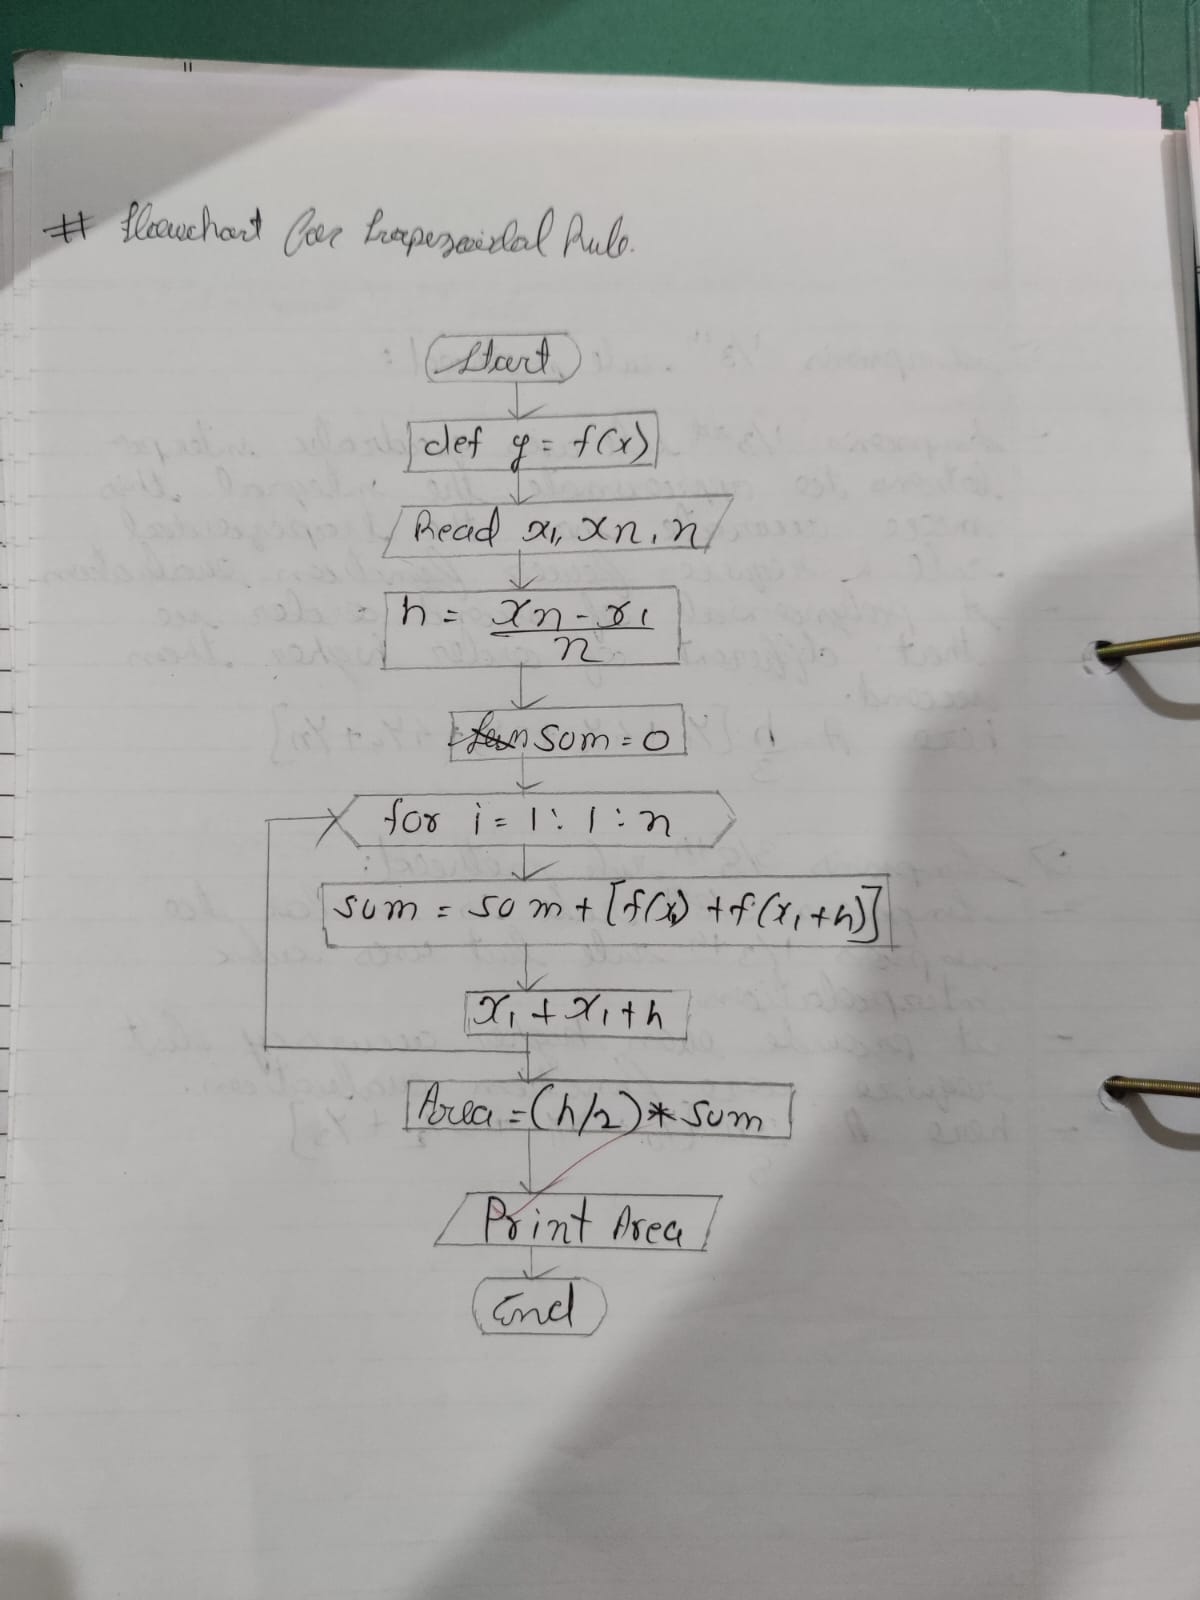 # Flowchart for trapezoidal Rule.
Start
def y = f(x)
Read x1, xn, n
h = xn - x1
n
sum = 0
for i = 1 : 1 : n
sum = sum + [f(x1) + f(x1+h)]
x1 + x1 + h
Area = (h/2) * sum
Print Area
End